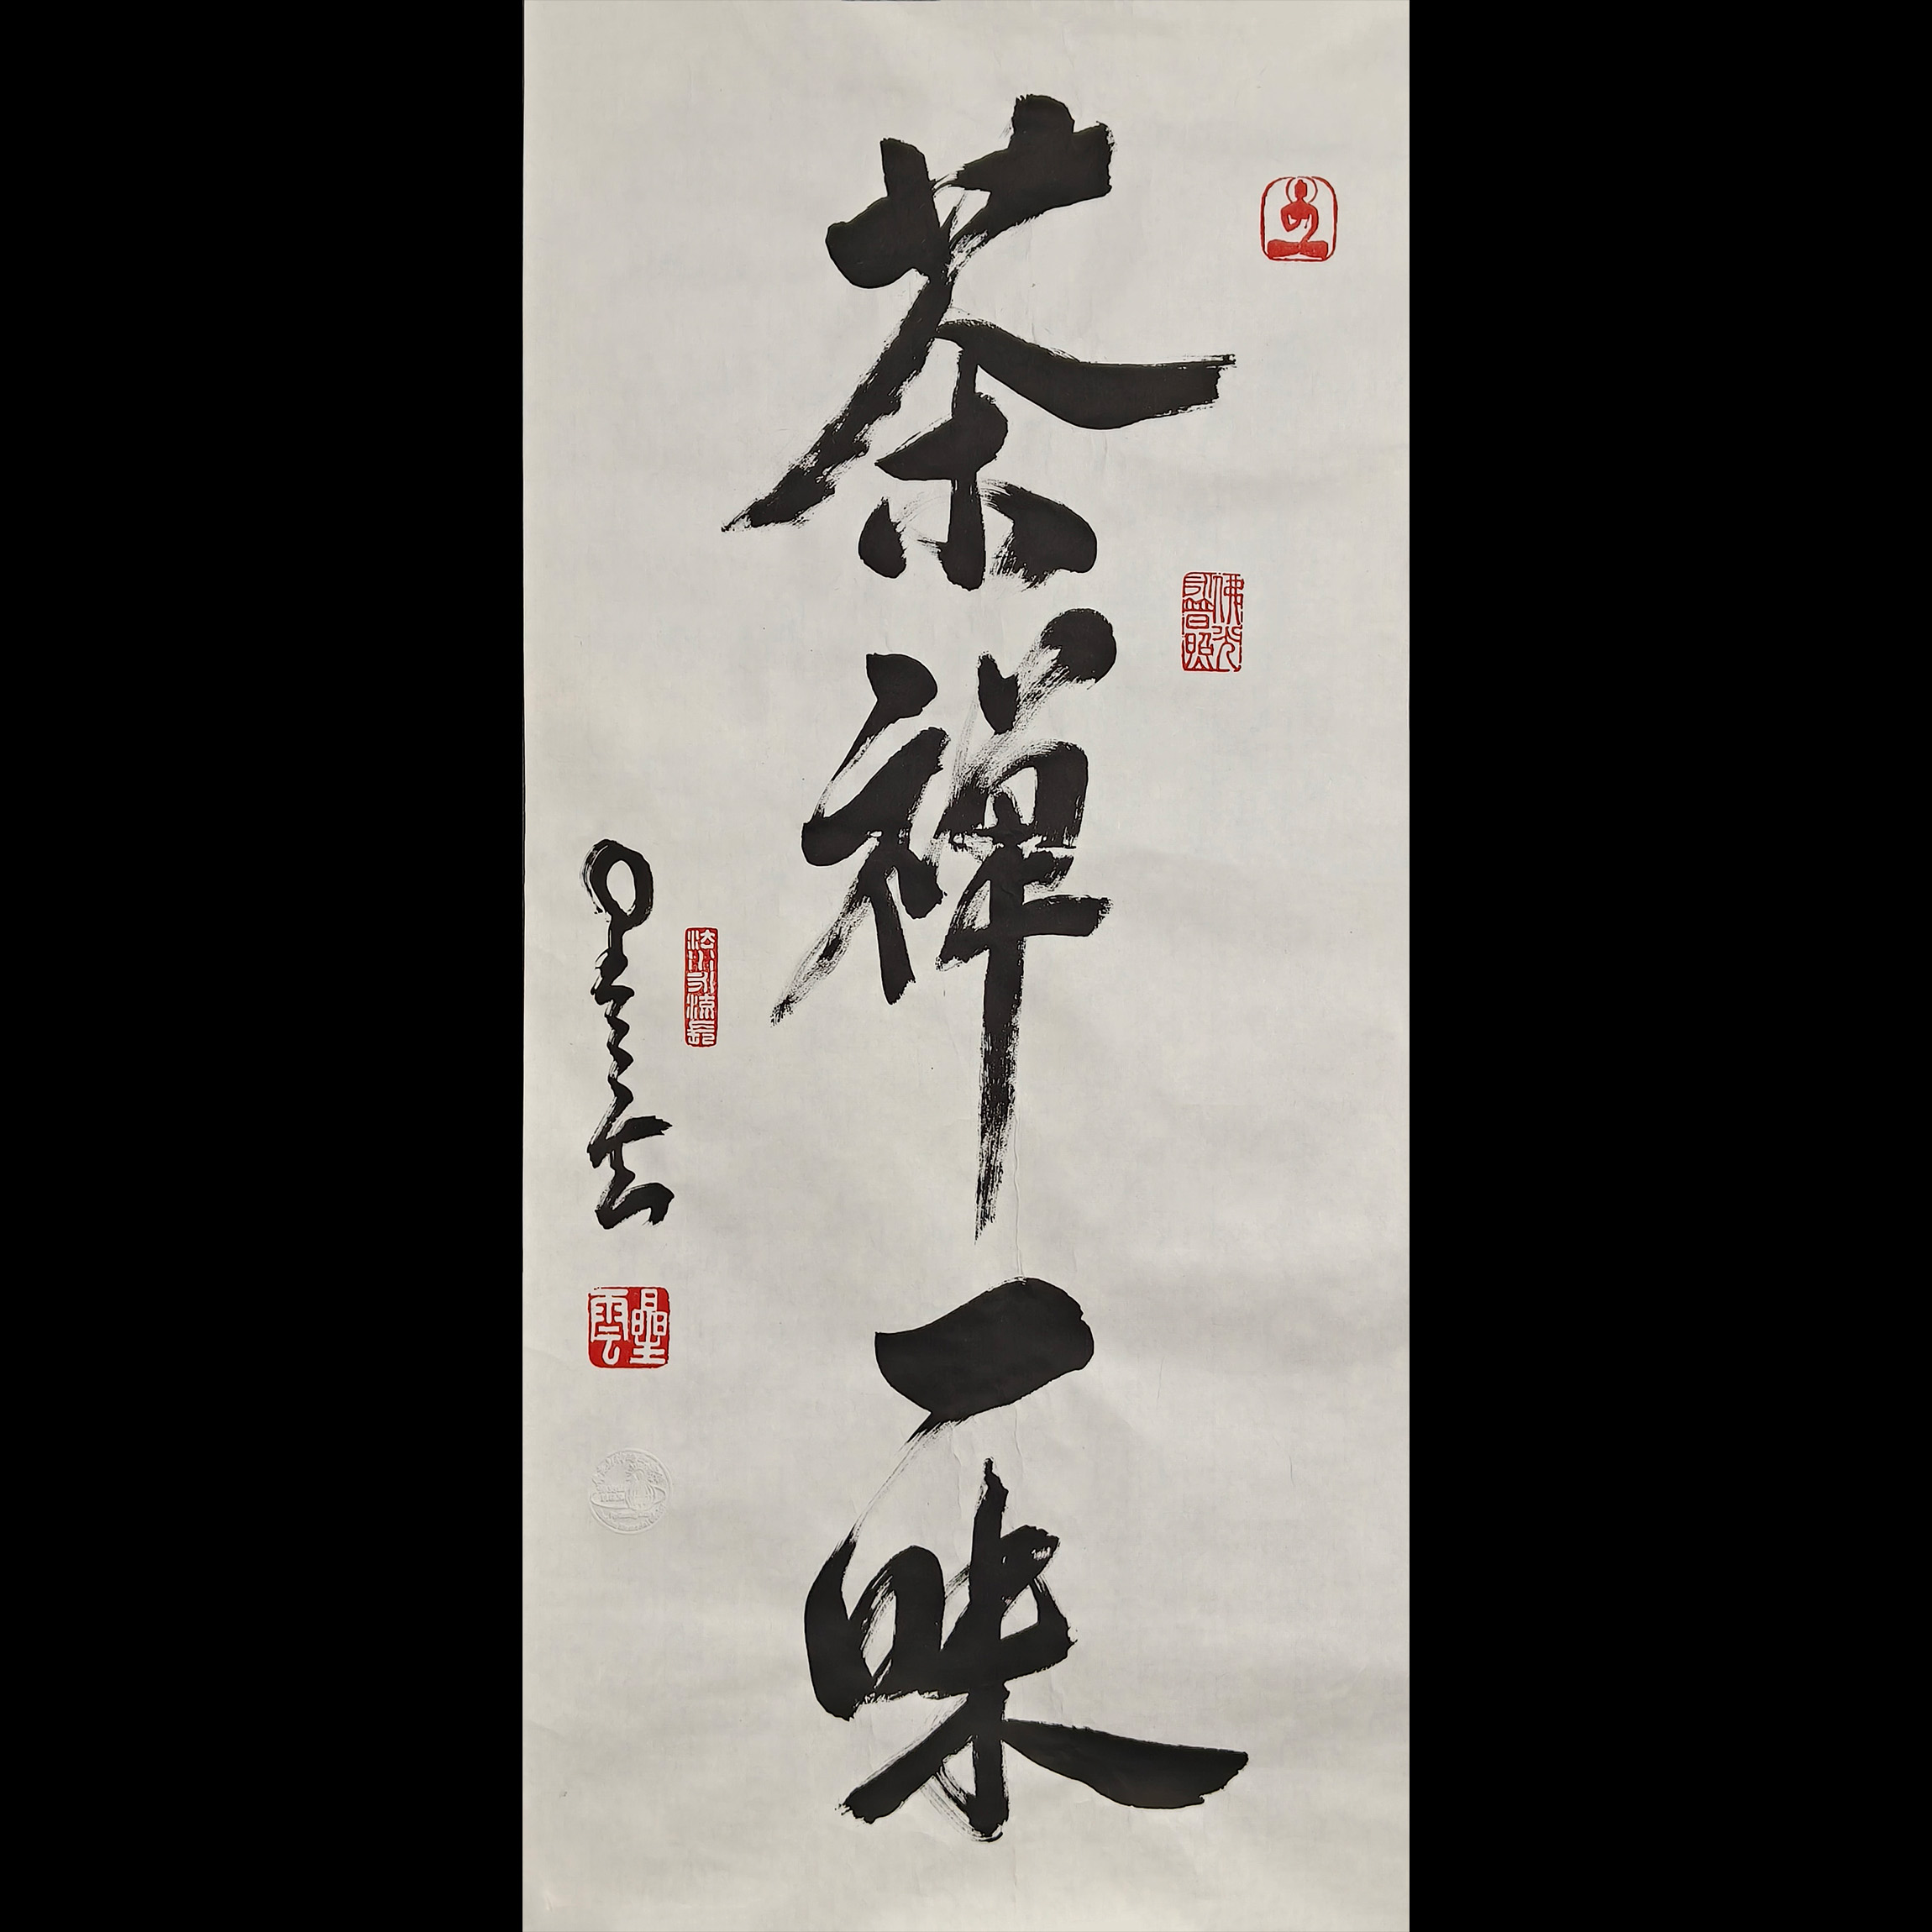 茶禪一味
佛光普照
法水流長
星雲
星雲